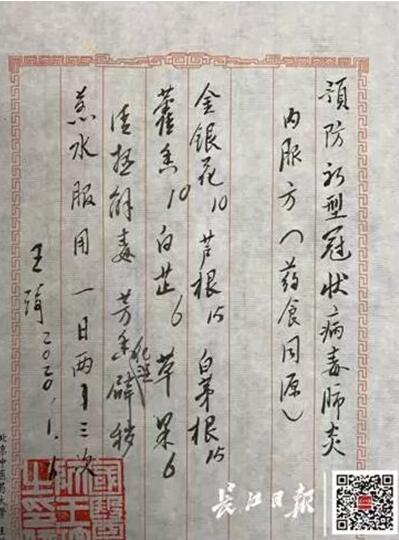 预防新型冠状病毒肺炎
内服方（药食同源）
金银花10 芦根15 白茅根15
藿香10 白芷6 草果6
清拯解毒 芳香化湿辟秽
煮水服用 一日两-三次
王琦 2020.1.
北京中医药大学 王
长江日报